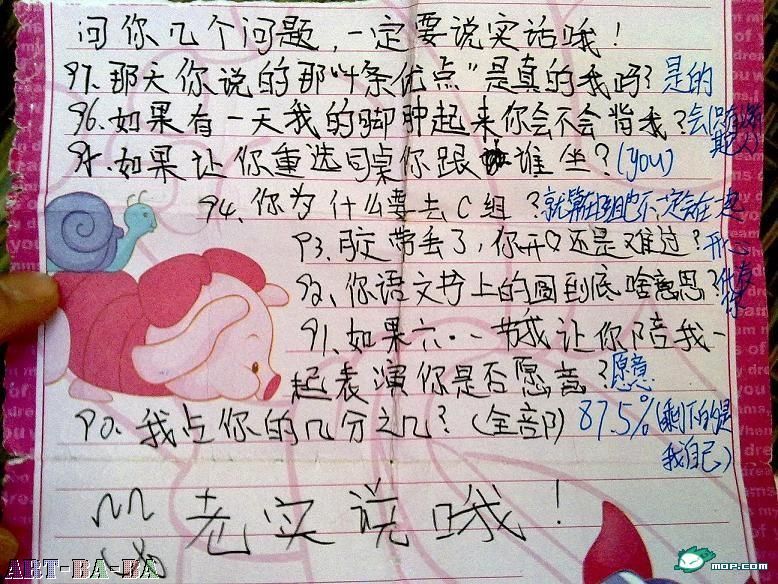 问你几个问题，一定要说实话哦！
97.那天你说的那"4条优点"是真的我吗？是的
96.如果有一天我的脚肿起来你会不会背我？会
95.如果让你重选同桌你跟谁坐？(you)
94.你为什么要去C组？就算在B组也不一定会在一起
93.胶带丢了，你开心还是难过？开心
92.你语文书上的圆到底啥意思？代表你
91.如果六·一节我让你陪我一
起表演你是否愿意？愿意
90.我占你的几分之几？(全部) 87.5%(剩下的是
我自己)
老实说哦！
ART-BA-BA
MOP.COM